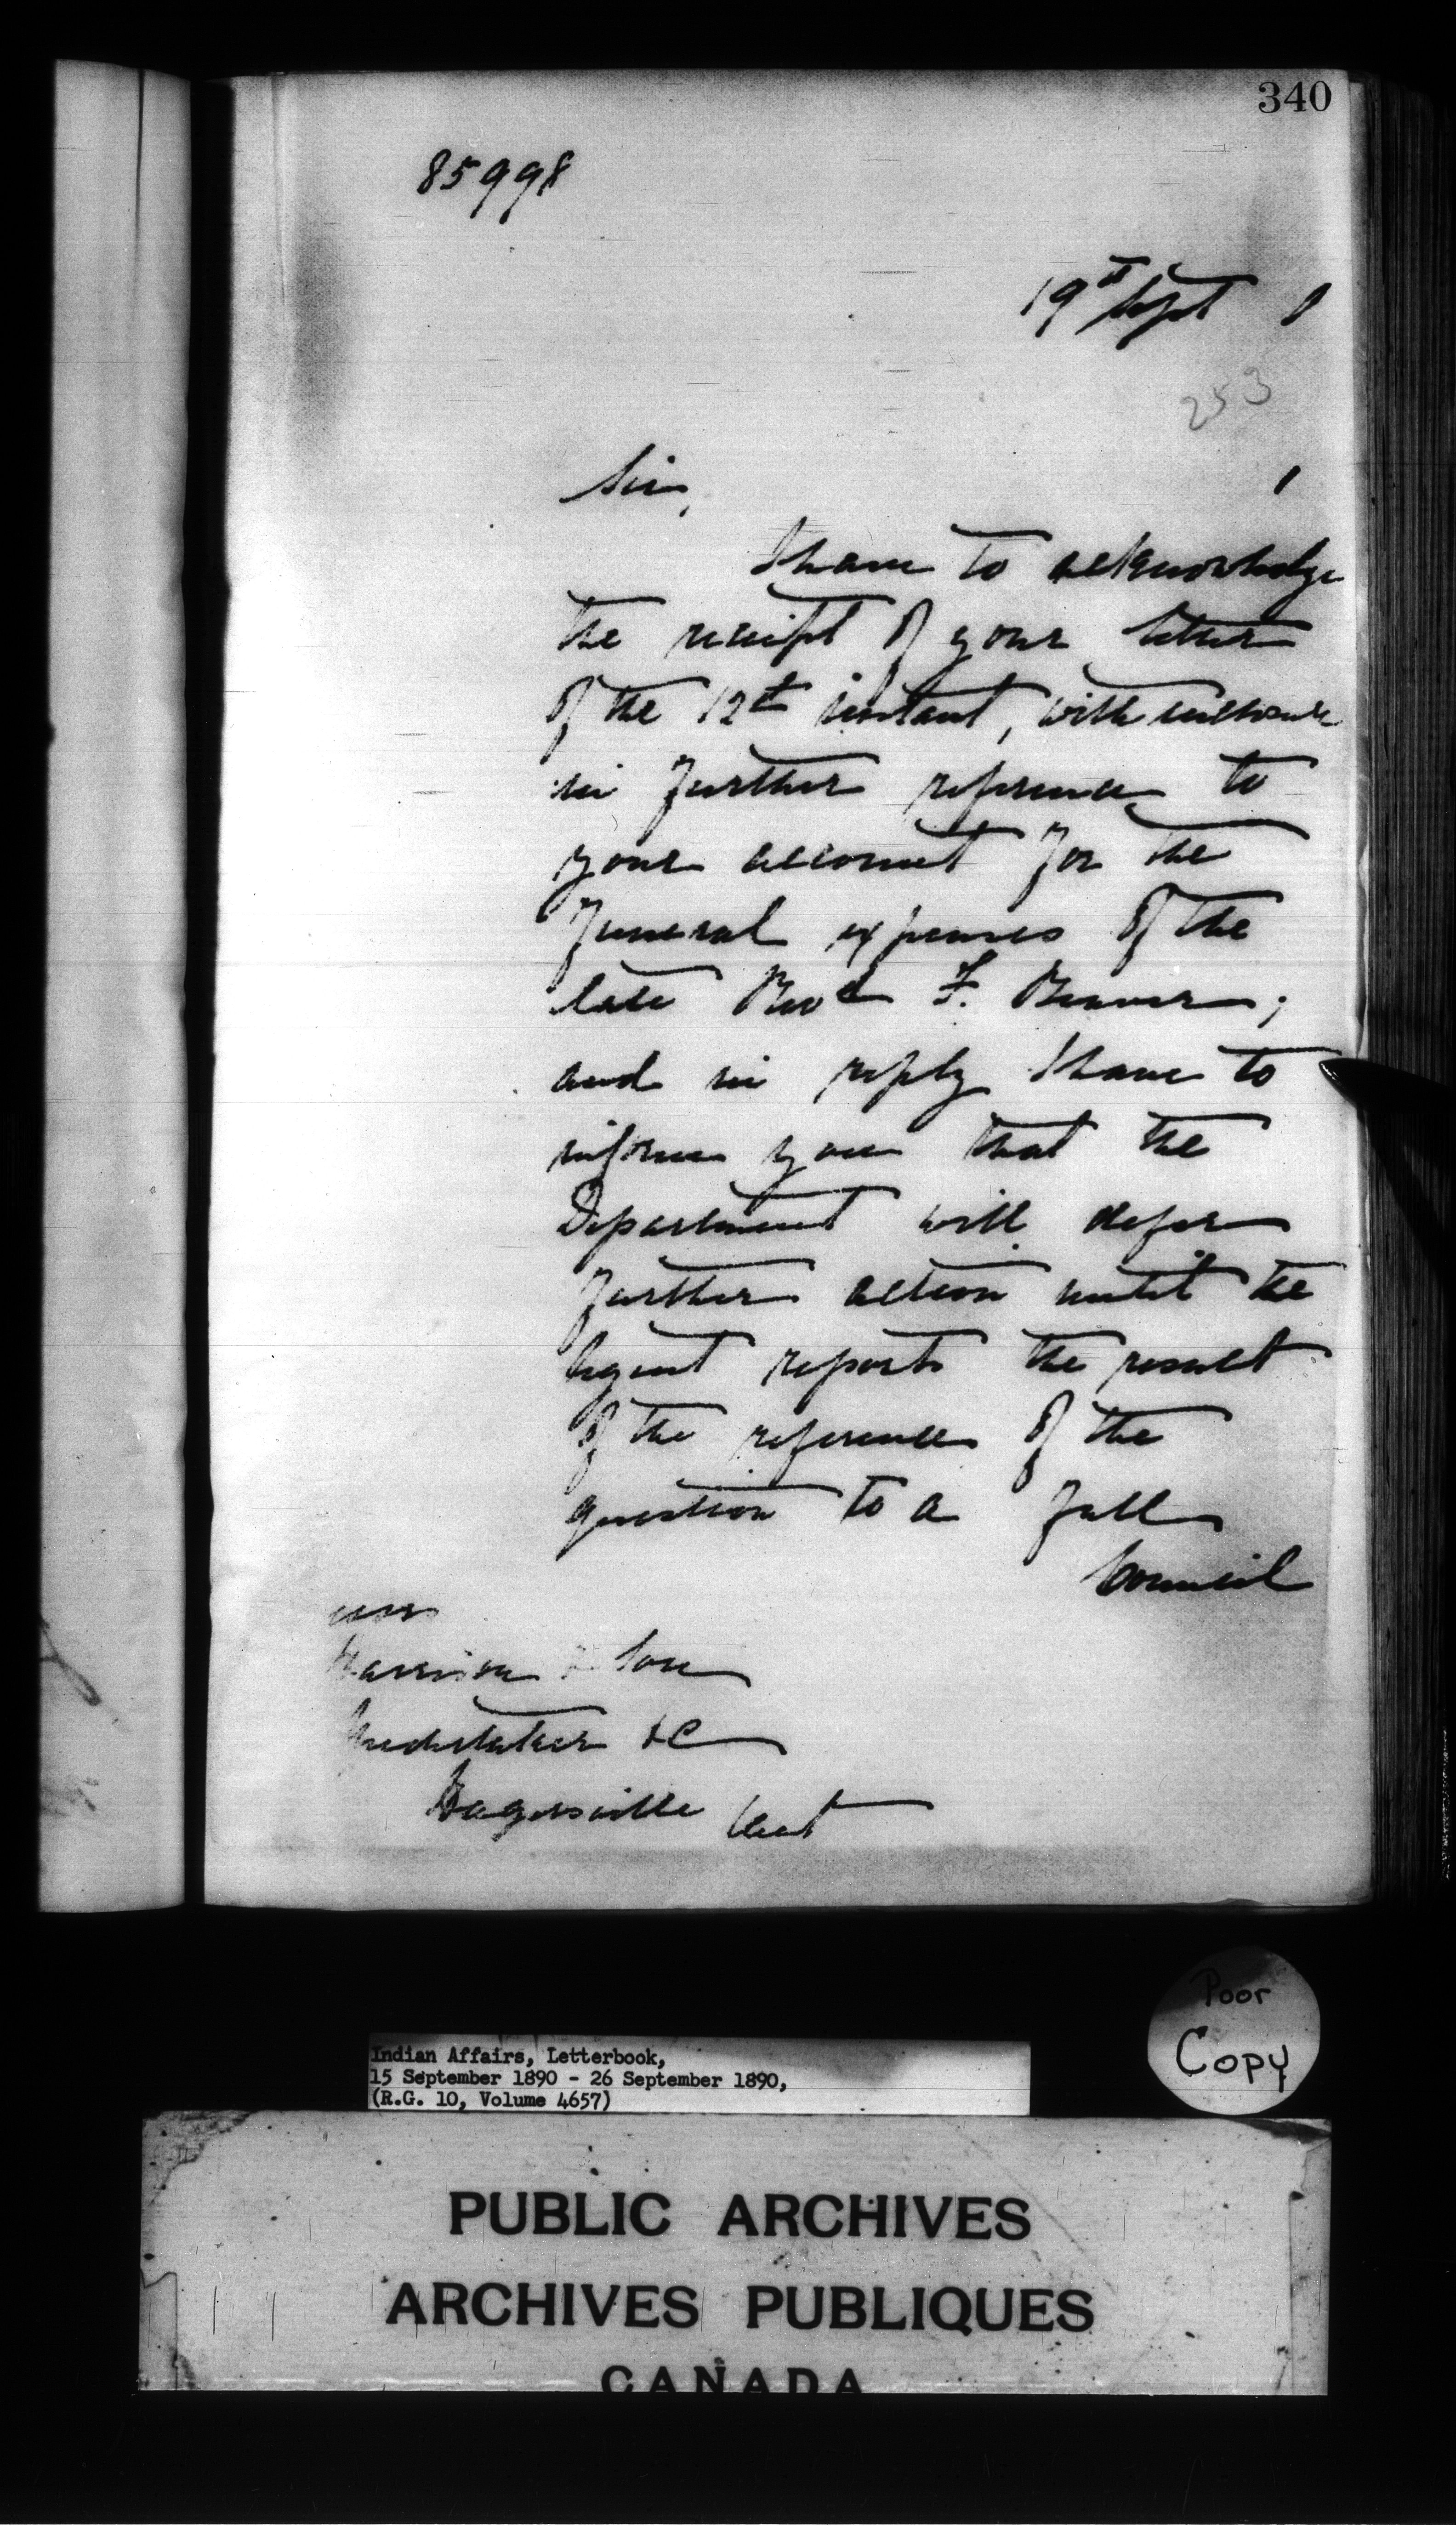 340
85998
19th Sept 0
253
Sir,
I have to acknowledge
the receipt of your letter
of the 12th instant, with enclosure
in further reference to
your account for the
funeral expenses of the
late F. Beaver;
and in reply I have to
inform you that the
Department will defer
further action until the
Agent reports the result
of the reference of the
question to a full
Council
Harrison & Son
Undertaker &c
Hagersville Ont
Poor
Copy
Indian Affairs, Letterbook,
15 September 1890 - 26 September 1890,
(R.G. 10, Volume 4657)
PUBLIC ARCHIVES
ARCHIVES PUBLIQUES
CANADA